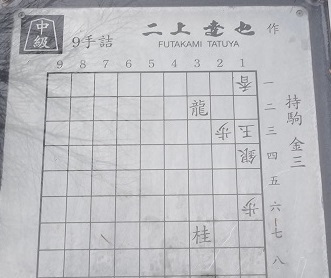 中級
9手詰
二上達也 作
FUTAKAMI TATUYA
9 8 7 6 5 4 3 2 1
香 一
龍 二
歩 玉 三
銀 四
五
歩 六
桂 七
八
持駒 金三